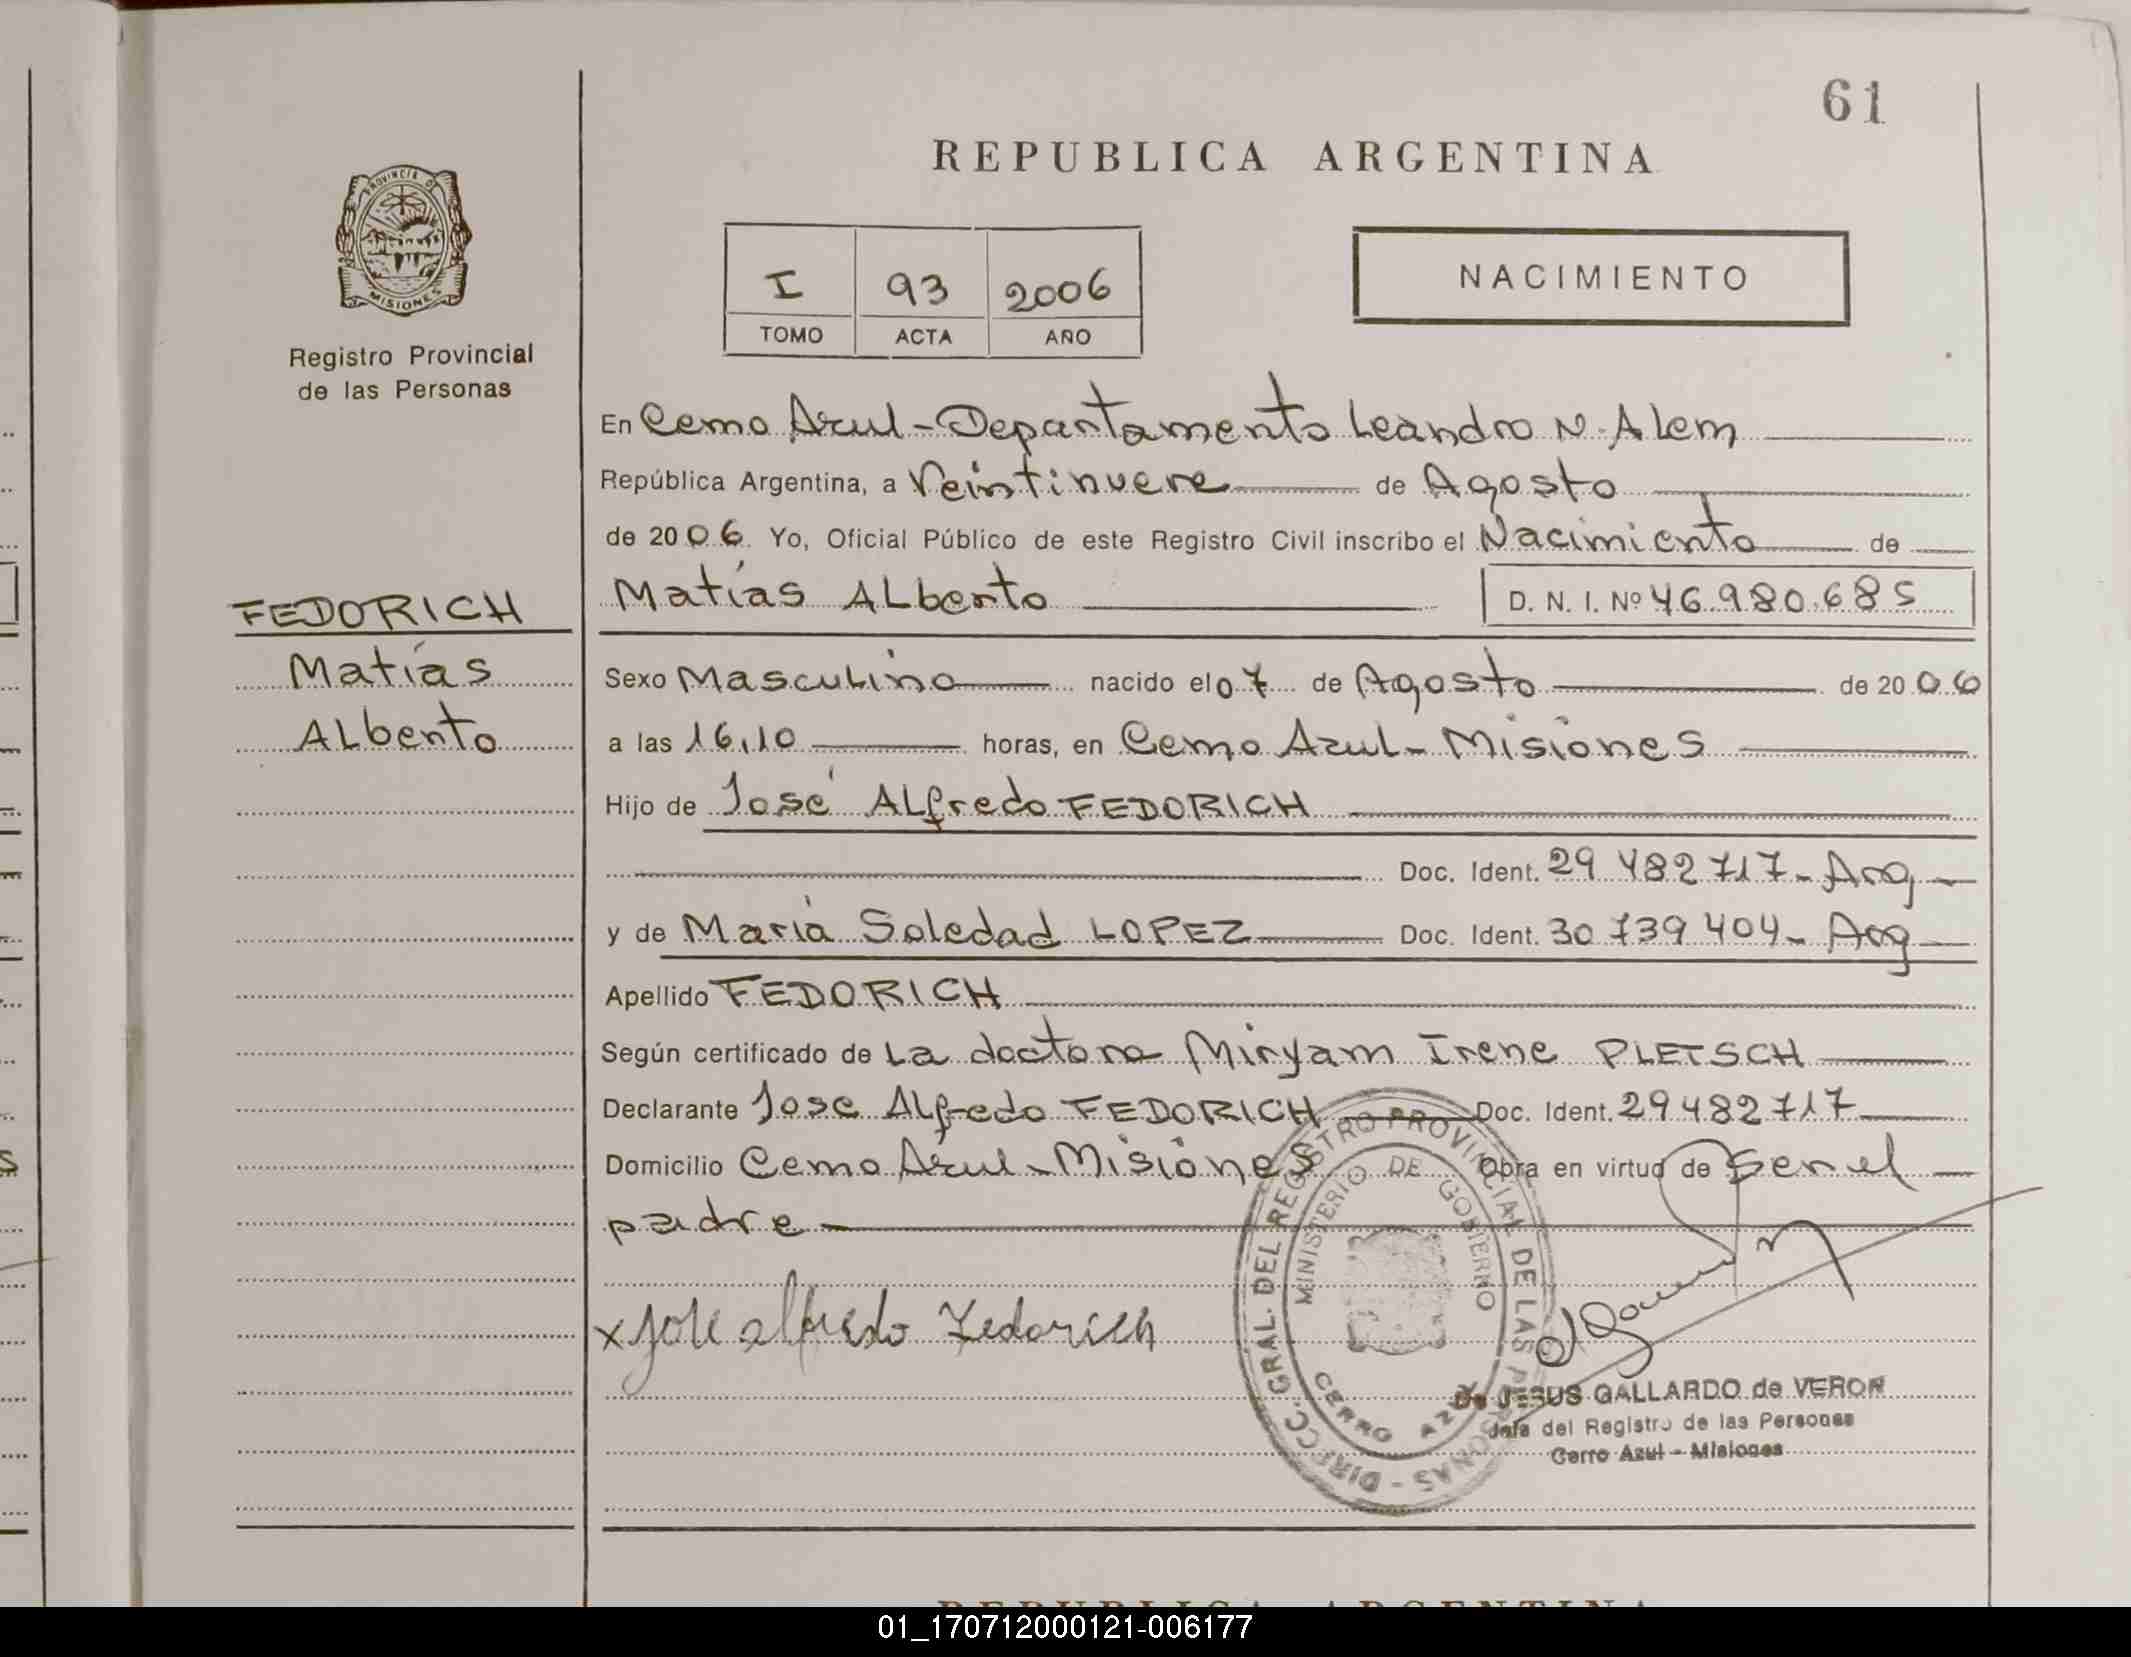 61
REPUBLICA ARGENTINA
PROVINCIA DE
MISIONES
Registro Provincial
de las Personas
I 93 2006
TOMO ACTA AÑO
NACIMIENTO
En Cerro Azul - Departamento Leandro N. Alem
República Argentina, a Veintinueve de Agosto
de 2006. Yo, Oficial Público de este Registro Civil inscribo el Nacimiento de
Matías Alberto D. N. I. Nº 46.980.685
FEDORICH
Matías
Alberto
Sexo Masculino nacido el 07 de Agosto de 2006
a las 16,10 horas, en Cerro Azul - Misiones
Hijo de José Alfredo FEDORICH
Doc. Ident. 29 482 717 - Arg
y de María Soledad LOPEZ Doc. Ident. 30 739 404 - Arg
Apellido FEDORICH
Según certificado de La doctora Miryam Irene PLETSCH
Declarante José Alfredo FEDORICH Doc. Ident. 29 482 717
Domicilio Cerro Azul - Misiones Obra en virtud de Ser el
padre
x José alfredo Fedorich
DIRECC. GRAL. DEL REGISTRO PROVINCIAL DE LAS PERSONAS -
MINISTERIO DE GOBIERNO
CERRO AZUL
De JESUS GALLARDO de VERON
Jefa del Registro de las Personas
Cerro Azul - Misiones
REPUBLICA ARGENTINA
01_170712000121-006177